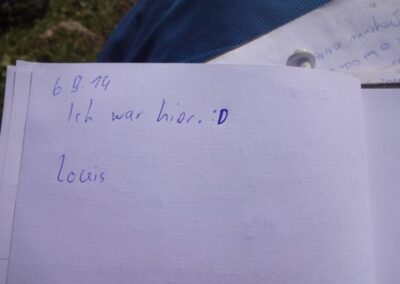 6.9.14
Ich war hier. :D
Louis